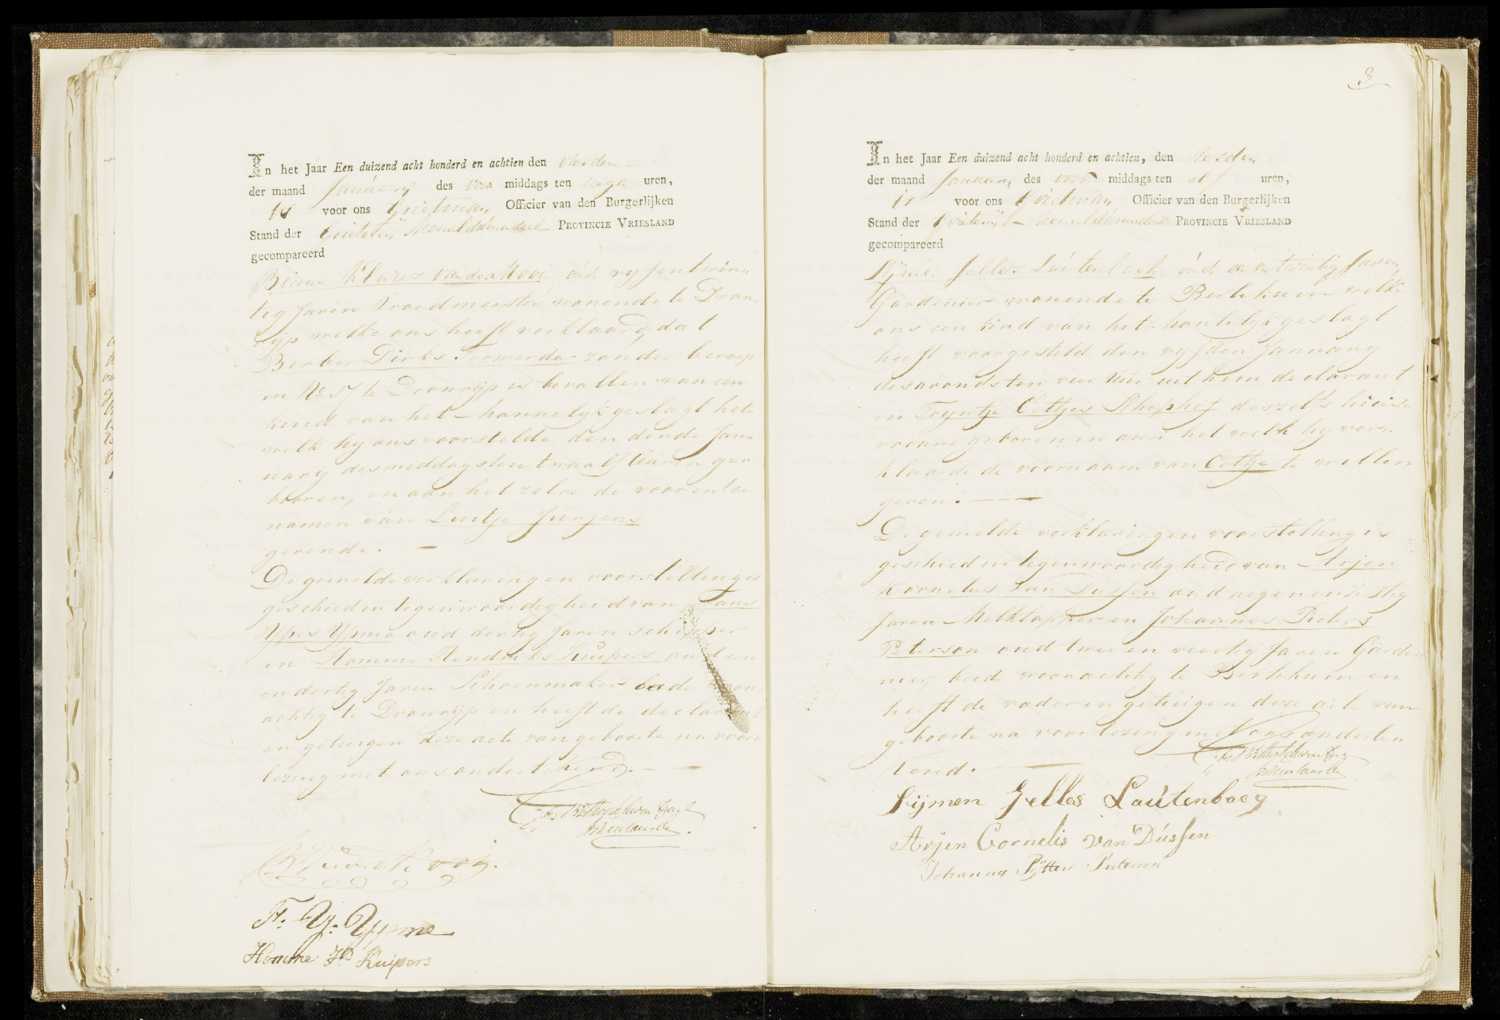 In het Jaar Een duizend acht honderd en achtien den vierden
der maand January des voor middags ten uren,
is voor ons Grietman, Officier van den Burgerlijken
Stand der Grietenij Menaldumadeel PROVINCIE VRIESLAND
gecompareerd
Klazes van der Kooi, oud vyfentwin
tig Jaren wonende te Dron
ryp welke ons heeft verklaard, dat
Berber Dirks zonder beroep
in No 57 te Dronryp is bevallen van een
kind van het mannelyk geslagt het
welk hy ons voorstelde den derde Jan
uary des middags ten twaalf uuren ge
booren, en aan het zelve de voor en toe
namen van Luitje Jurjens
gevende.
De gemelde verklaring en voorstelling is
geschied in tegenwoordigheid van Hans
Ypes Ypma oud dertig Jaren schipper
en Homme Hendriks Kuipers oud een
en dertig Jaren Schoenmaker beide woon
achtig te Dronryp en heeft de declarant
en getuigen deze acte van geboorte na voor
lezing met ons onderteekend.
H. Y. Ypma
Homme Hs Kuipers
8
In het Jaar Een duizend acht honderd en achtien, den zesden
der maand January des voor middags ten elf uren,
is voor ons Grietman, Officier van den Burgerlijken
Stand der Grietenij Menaldumadeel PROVINCIE VRIESLAND
gecompareerd
Sijmen Jelles Lautenbach, oud en twintig Jaren
Gardenier wonende te Berlikum welke
ons een kind van het mannelyk geslagt
heeft voorgesteld den vyfden January
des avonds ten vier uur uit hem declarant
en Tryntje Ottjes Schiphof deszelfs huis
vrouw geboren en aan het welk hy ver
klaarde de voornaam van Ottje te willen
geven.
De gemelde verklaring en voorstelling is
geschied in tegenwoordigheid van Arjen
Kornelis van Dussen oud negenenvijftig
Jaren Melktapper en Johannes Pieters
Peterson oud twee en veertig Jaren Garde
nier, beide woonachtig te Berlikum en
heeft de vader en getuigen deze acte van
geboorte na voorlezing met ons onderteke
kend.
Sijmen Jelles Lautenbaeg
Arjen Cornelis van Dussen